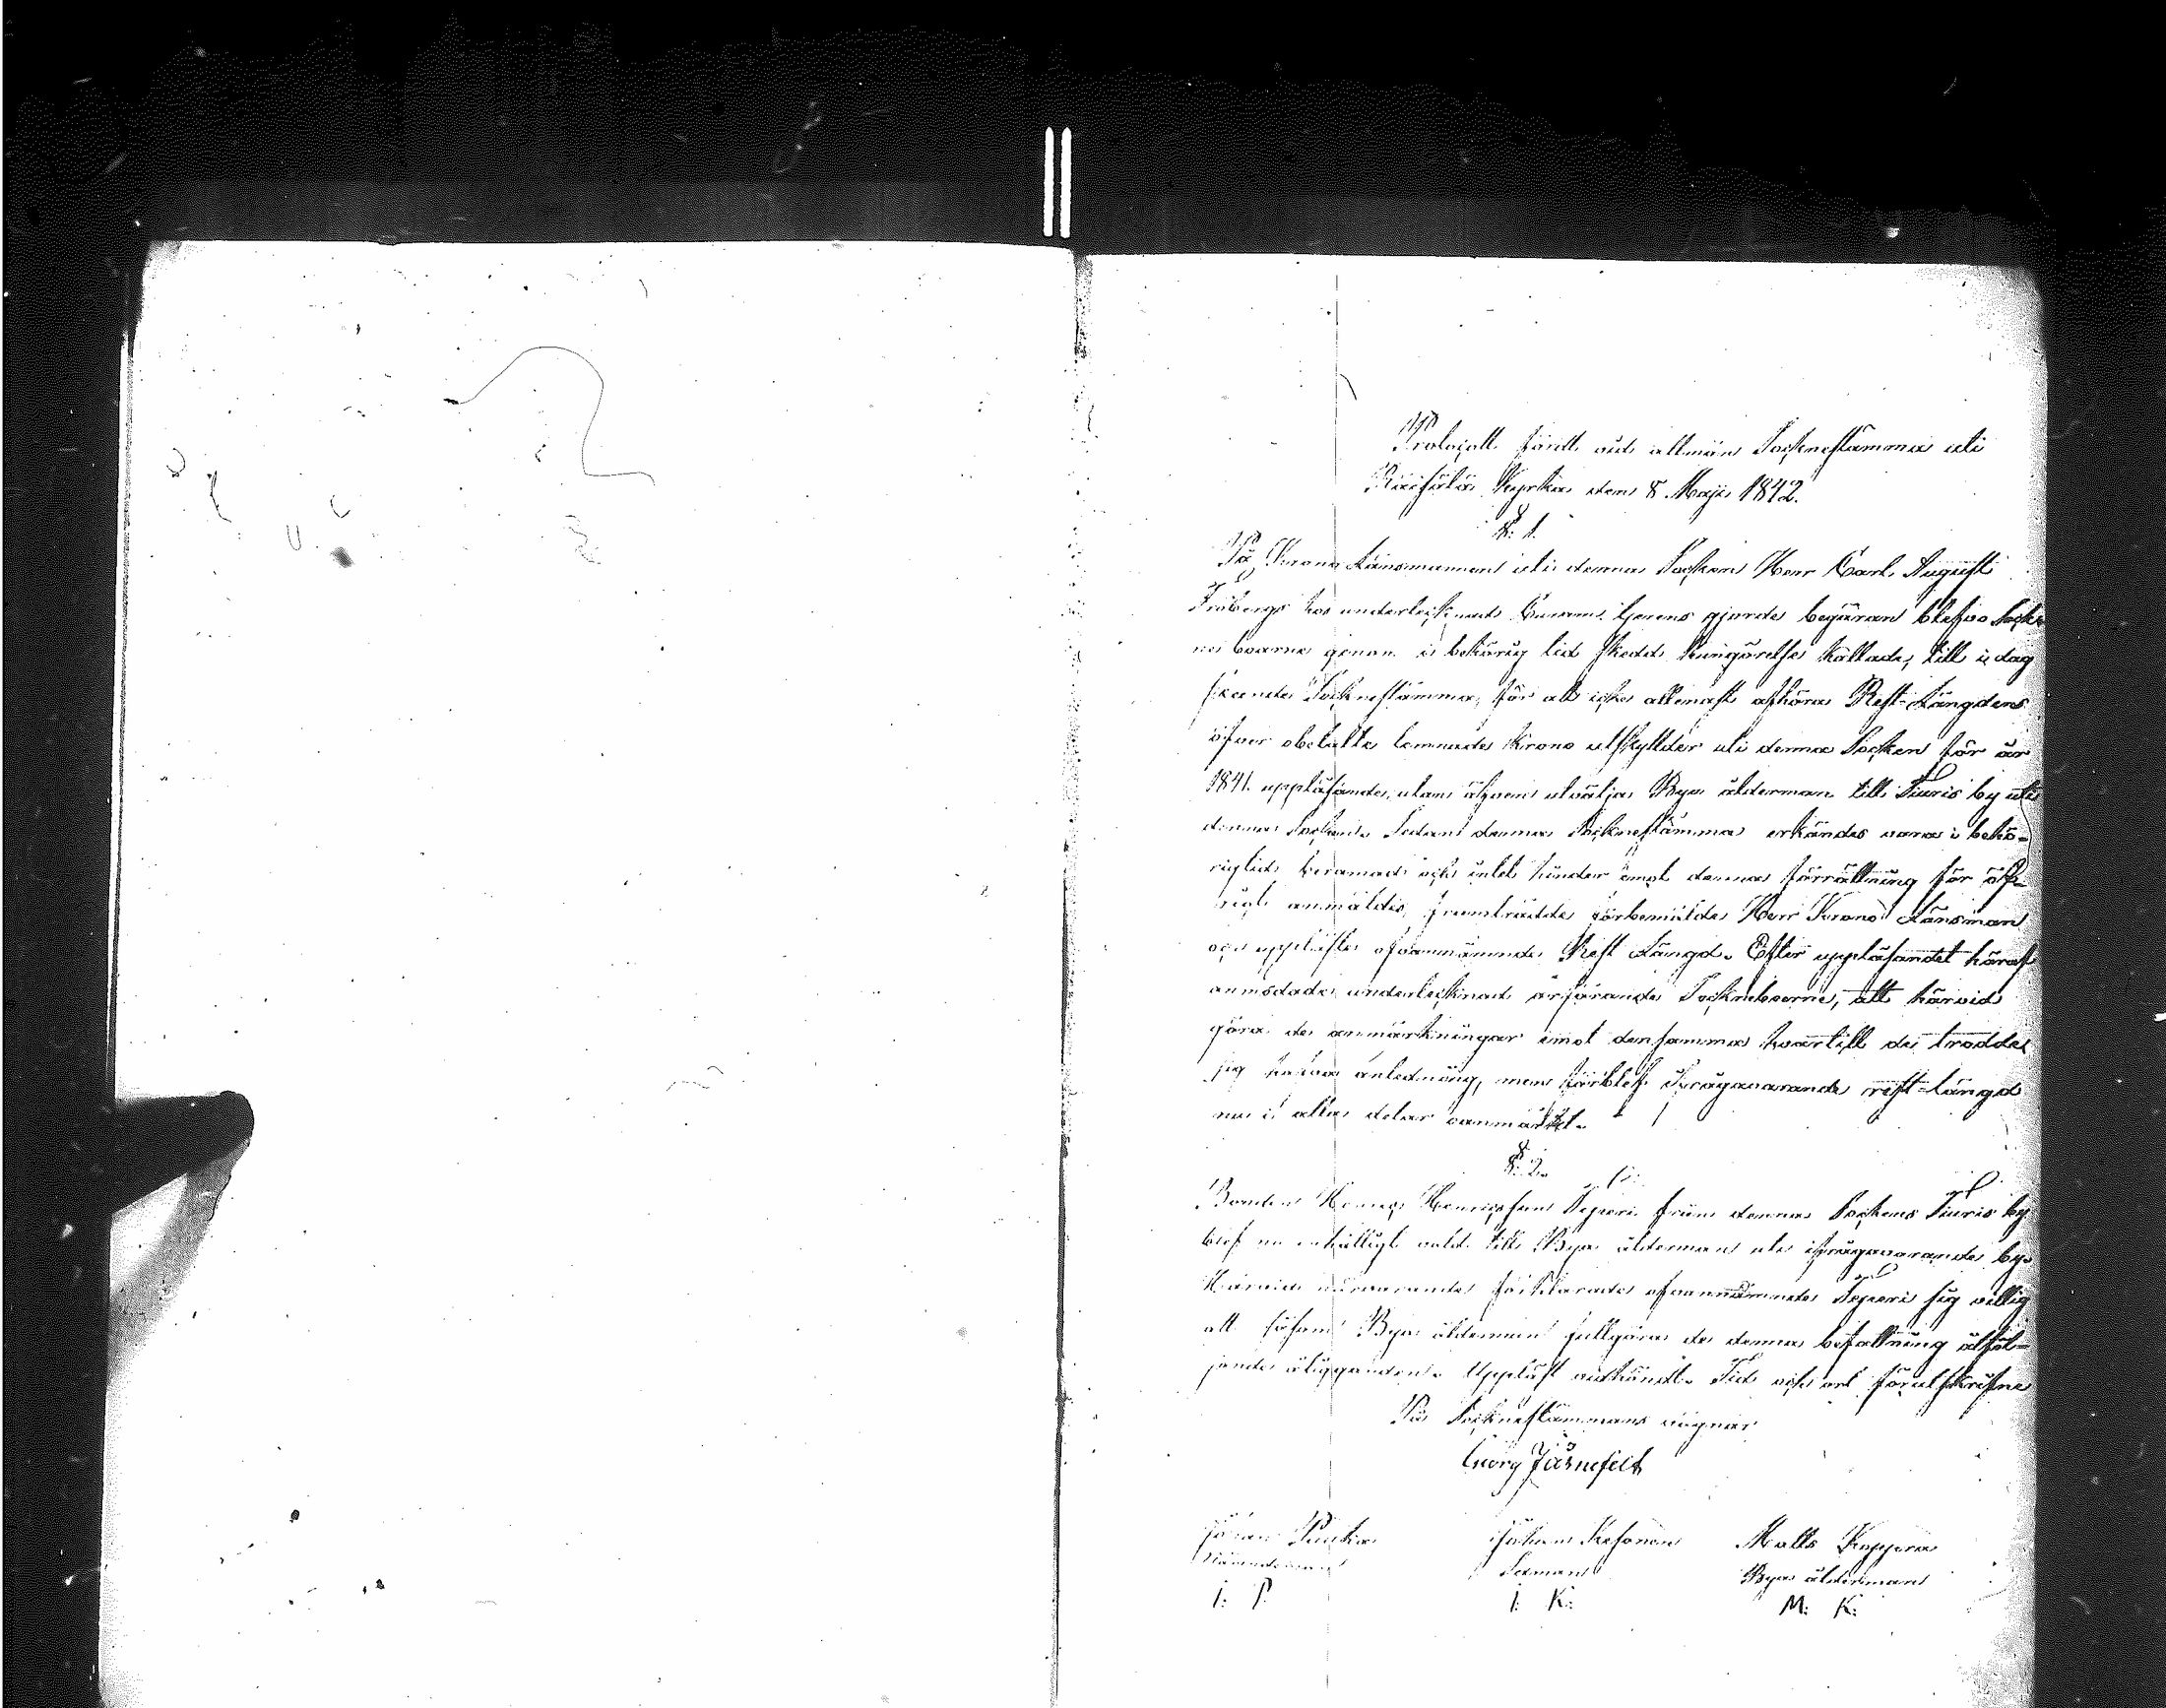 Protocoll fördt vid allmän Socknestämma uti
Räisälä Kyrka den 8 Maji 1842.
§: 1.
På Krono Länsmannen uti denna Socken Herr Carl August
Fribergs hos undertecknad gjorde begäran blefvo Sock-
ne boarne genom i behörig tid skedd kungörelse kallade, till i dag
skeende Sockne stämma, för att icke allenast afhöra Rest-Längdens
öfver obetalte lemnade Krono utskylder uti denna Socken för år
1841 uppläsande, utan äfven utvälja Bya ålderman till Tiuris by uti
denna Socken. Sedan denna Sockne stämma erkändes vara i behö-
rig tid beramad och intet hinder emot denna förrättning för öf-
rigt anmäldes, framträdde förbemälde Herr Krono Länsman
och uppläste ofvannämnde Rest Längd. Efter uppläsandet häraf
anmodade undertecknad närvarande Sockneboerne, att härvid
göra de anmärkningar emot densamma hvartill de trodde
sig hafva anledning, men härblef ifrågavarande rest-längd
nu i alla delar oanmärkt.
§: 2.
Bonden Henric Henricsson Teperi från denna Sockens Tiuris by
blef nu enhälligt vald till Bya ålderman uti ifrågavarande by.
Härvid närvarande förklarade ofvannämnde Teperi sig villig
att såsom Bya ålderman fullgöra de denna befattning åtföl-
jande åligganden. Uppläst vidkändt. Tid och ort förutskrifne
På Sockne stämmans vägnar
Georg Järnefelt
Jöran Pukka Johan Kesonen Matts Kuppera
Nämndeman Sexman Bya ålderman
I: P. I: K: M: K: